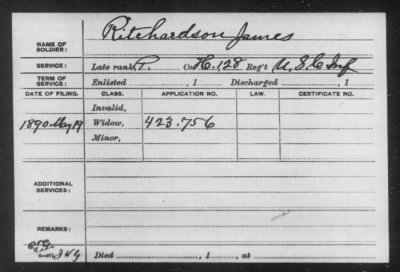 NAME OF SOLDIER: Ritchardson James
SERVICE: Late rank P. Co. H. 128 Reg't U.S.C Inf
TERM OF SERVICE: Enlisted , 1 Discharged , 1
DATE OF FILING. CLASS. APPLICATION NO. LAW. CERTIFICATE NO.
Invalid,
1890 May 19 Widow, 423.756
Minor,
ADDITIONAL SERVICES:
REMARKS:
Died , 1 , at